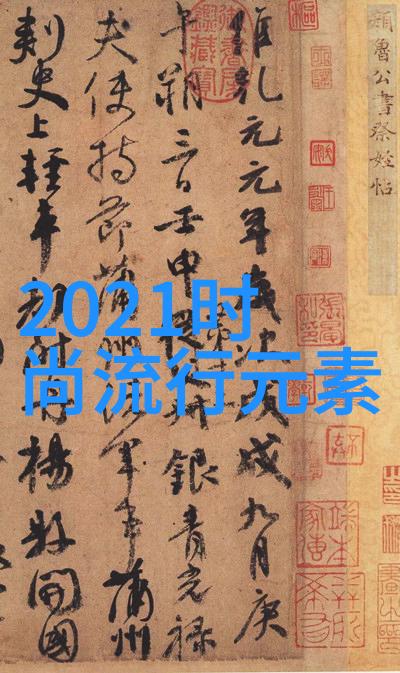 顏魯公書祭姪帖
維乾元元年歲次戊戌九月庚
午朔三日壬申從父叔銀青光祿
夫使持節蒲州諸軍事蒲州
刺史上輕車都尉丹楊縣開國
2021时
尚流行元素